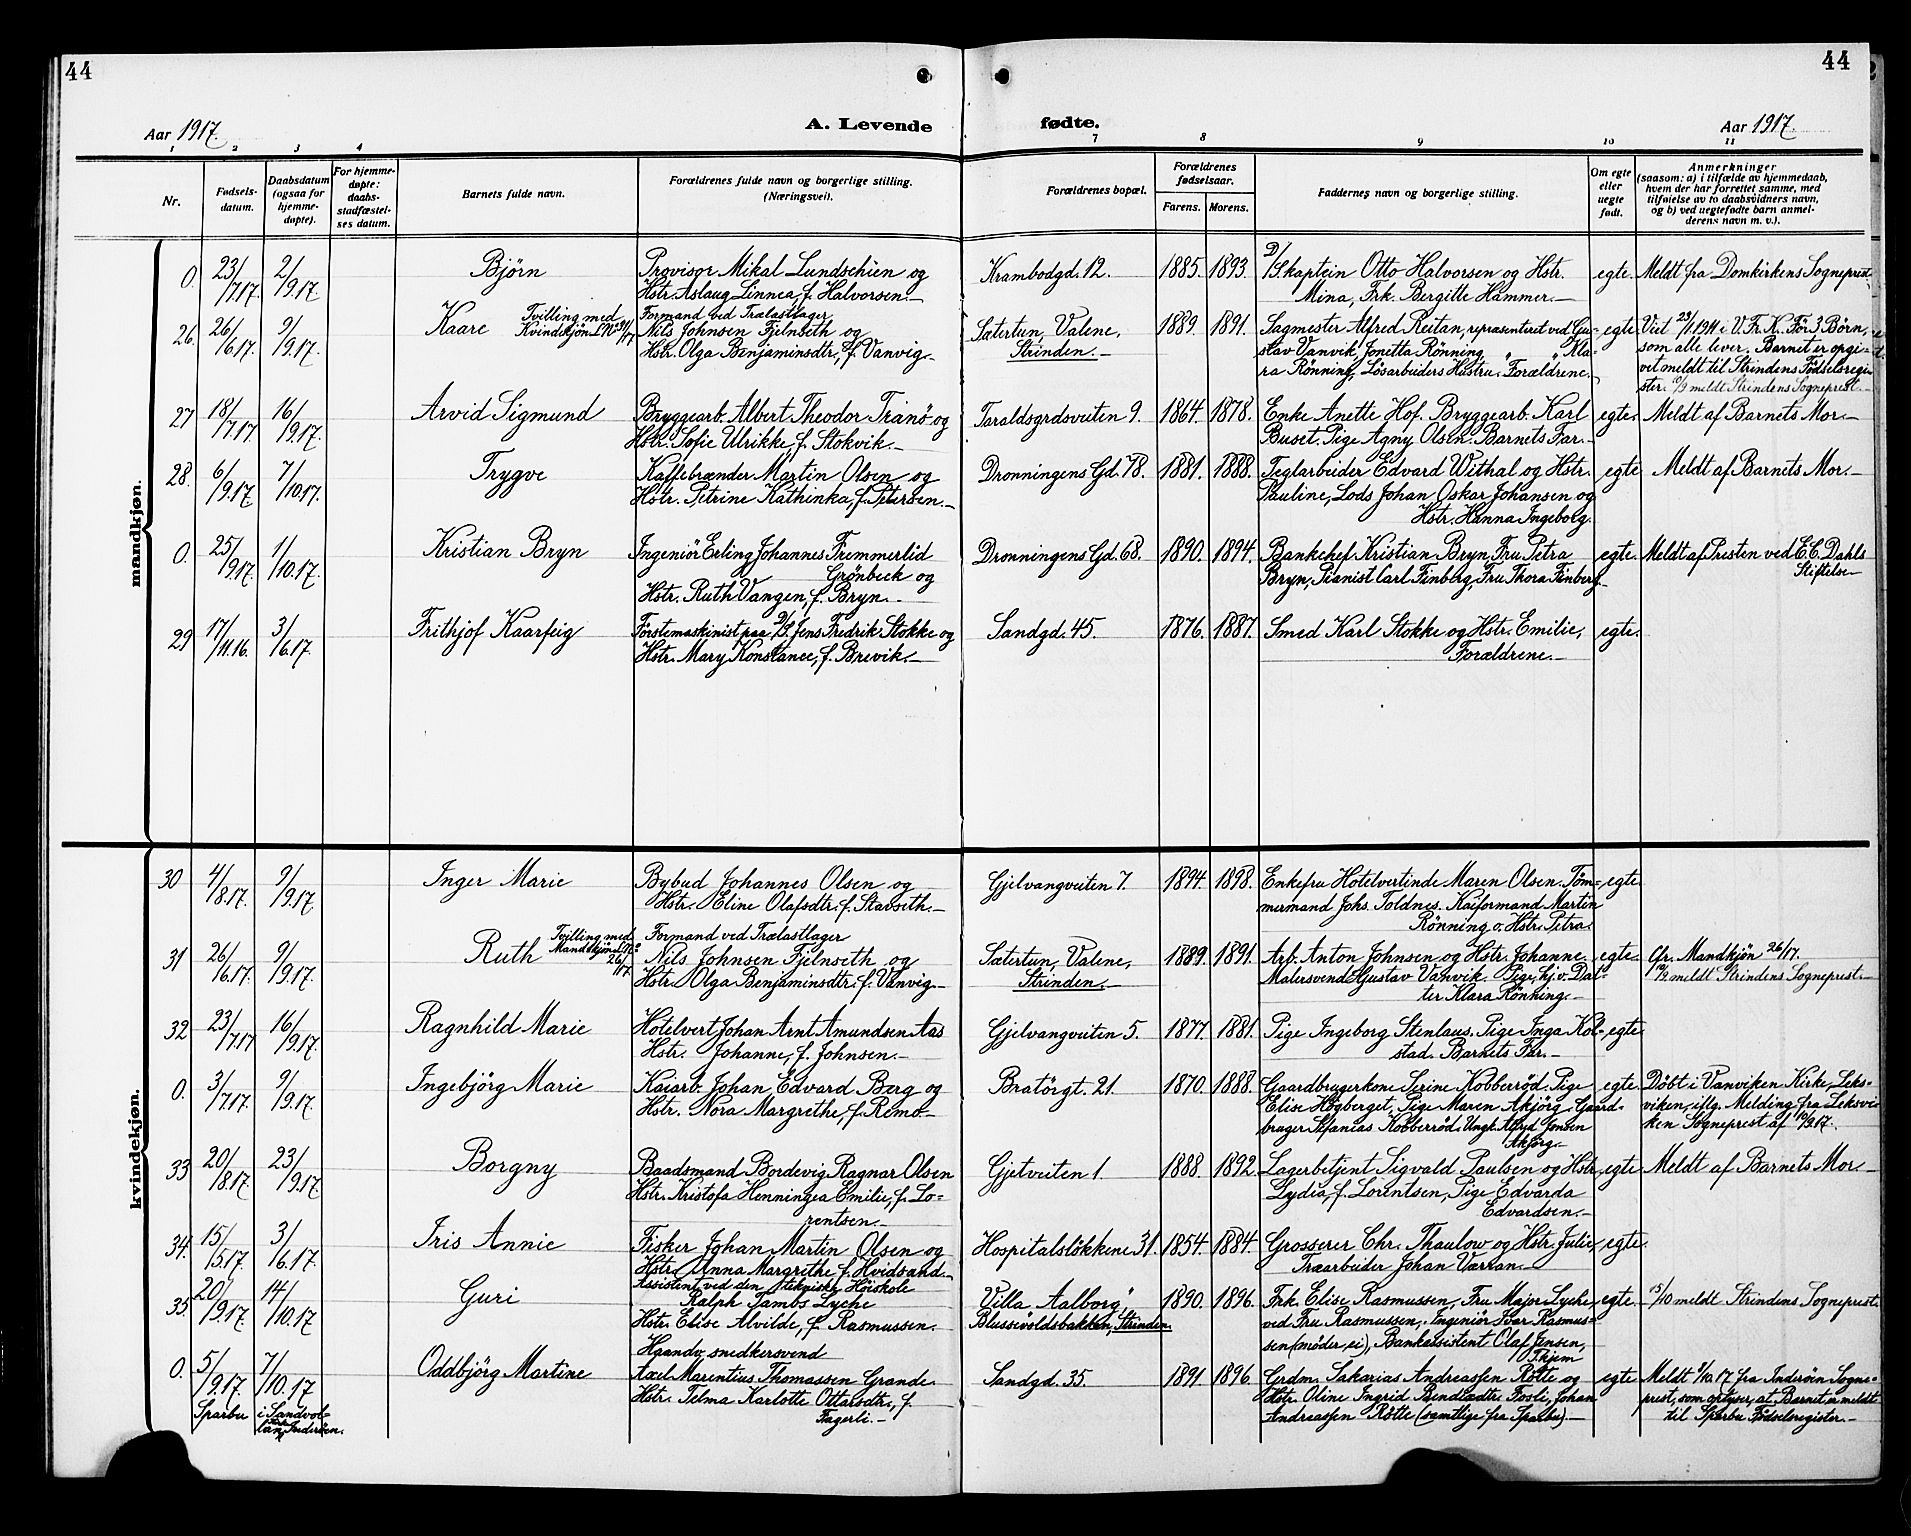 44
44
Aar 1917.
A. Levende
fødte.
Aar 1917.
1
2
3
4
7
8
9
10
11
Nr.
Fødsels-
datum.
Daabsdatum
(ogsaa for
hjemme-
døpte).
For hjemme-
døpte:
daabs-
stadfæstel-
ses datum.
Barnets fulde navn.
Forældrenes fulde navn og borgerlige stilling.
(Næringsvei).
Forældrenes bopæl.
Forældrenes
fødselsaar.
Farens.
Morens.
Faddernes navn og borgerlige stilling.
Om egte
eller
uegte
født.
Anmerkninger
(saasom: a) i tilfælde av hjemmedaab,
hvem der har forrettet samme, med
tilføielse av to daabsvidners navn,
og b) ved uegtefødte barn anmel-
derens navn m. v.).
mandkjøn.
0. 23/7.17. 2/9.17. Bjørn Provisor Mikal Lundschien og Krambodgd. 12. 1885. 1893. D/S kaptein Otto Halvorsen og Hstr. egte. Meldt fra Domkirkens Sogneprest
Hstr. Aslaug Linnea, f. Halvorsen.— Mina, Frk. Bergitte Hammer.—
26. 26/6.17. 9/9.17. Kaare Tvilling med Kvindekjön L.No 31/17 Formand ved Trælastlager
Nils Johnsen Fjelnseth og Sætertun, Valene, 1889. 1891. Sagmester Alfred Reitan, repræsenteret ved Gu- egte. Viet 23/1 1911 i V. Fr. K. Før 3 Börn,
Hstr. Olga Benjaminsdtr., f. Vanvig.— Strinden.— stav Vanvik, Jonetta Rönning, Kla- som alle lever. Barnet er opgi-
ra Rönning, Lösarbeiders Hustru. Forældrene.— vet meldt til Strindens Fødselsregi-
ster. meldt Strindens Sogneprest.—
27 18/7.17 16/9.17. Arvid Sigmund Bryggearb. Albert Theodor Tranö og Taraldsgrdsveiten 9. 1864. 1878. Enke Anette Hof. Bryggearb. Karl egte. Meldt af Barnets Mor.—
Hstr. Sofie Ulrikke, f. Stokvik.— Buset. Pige Agny Olsen. Barnets Far.—
28. 6/9.17. 7/10.17. Trygve Kaffebrænder Martin Olsen og Dronningens Gd. 78. 1881. 1888. Teglarbeider Edvard Withal og Hstr. egte Meldt af Barnets Mor.—
Hstr. Petrine Kathinka, f. Petersen.— Pauline, Lods Johan Oskar Johansen og
Hstr. Hanna Ingeborg.
0. 25/9.17. 1/10.17. Kristian Bryn Ingeniör Erling Johannes Fremmerlid Dronningens Gd. 68. 1890. 1894. Bankchef Kristian Bryn, Fru Petra egte. Meldt af Presten ved E.C. Dahls
Grönbeck og Bryn, Pianist Carl Finberg, Fru Thora Finberg— Stiftelse—
Hstr. Ruth Vangen, f. Bryn.—
29 17/11.16. 3/6.17. Frithjof Kaarfeig Förstemaskinist paa D/S. Jens Fredrik Stokke og Sandgd. 45. 1876. 1887. Smed Karl Stokke og Hstr. Emilie, egte.
Hstr. Mary Konstance, f. Brevik.— Forældrene.—
kvindekjøn.
30 4/8.17. 9/9.17. Inger Marie Bybud Johannes Olsen og Gjelvangveiten 7. 1894. 1898. Enkefru Hotelvertinde Maren Olsen. Töm- egte.
Hstr. Eline Olafsdtr. f. Stavseth.— mermand Johs. Toldnes. Kaiformand Martin
Rönning o. Hstr. Petra.
31 26/6.17. 9/9.17. Ruth Tvilling med Mandskjön L.No 26/17. Formand ved Trælastlager
Nils Johnsen Fjelnseth og Sætertun, Valene, 1889. 1891. Arb. Anton Johnsen og Hstr. Johanne egte. Cfr. Mandkjön 26/17.
Hstr. Olga Benjaminsdtr. f. Vanvig.— Strinden.— Malersvend Gustav Vanvik. Pige, hj. v. Dat- 10/9 meldt Strindens Sogneprest—
ter Klara Rönning.—
32 23/7.17 16/9.17. Ragnhild Marie Hotelvert Johan Arnt Amundsen Aas Gjelvangveiten 5. 1877. 1881. Pige Ingeborg Stenlaus. Pige Inga Kol- egte.
Hstr. Johanne, f. Johnsen.— stad. Barnets Far.—
0. 3/7.17. 9/9.17. Ingebjörg Marie Kaiarb. Johan Edvard Berg og Bratörgt. 21. 1870. 1888. Gaardbrugerkone Serine Kobberrød. Pige egte. Döbt i Vanviken Kirke, Leks-
Hstr. Nora Margrethe, f. Remo— Elise Högberget. Pige Maren Akjörg. Gaard- viken, iflg. Melding fra Leksvi-
bruger Stefanias Kobberröd. Ungk. Alfred Jensen ken Sogneprest af 10/9.17.
Akjörg.—
33 20/8.17. 23/9.17. Borgny Baadsmand Bordevig Ragnar Olsen Gjetveiten 1 1888. 1892. Lagerbetjent Sigvald Paulsen og Hstr. egte. Meldt af Barnets Mor—
Hstr. Kristofa Henningea Emilie, f. Lo- Lydia, f. Lorentsen, Pige Edvarda
rentsen.— Edvardsen.—
34. 15/5.17. 3/6.17. Iris Annie Fisker Johan Martin Olsen og Hospitalslökkene 31. 1854. 1884. Grosserer Chr. Thaulow og Hstr. Julie, egte.
Hstr. Anna Margrethe f. Hvidsand.— Træarbeider Johan Værran.—
35. 20/9.17. 14/10.17. Guri Assistent ved den tekniske Höiskole
Ralph Tambs Lyche „Villa Aalborg“, 1890. 1896. Frk. Elise Rasmussen, Fru Major Lyche, egte. 15/10 meldt Strindens Sogneprest.
Hstr. Elise Alvilde, f. Rasmussen. Blussevoldsbakken, Strinden. ved Fru Rasmussen, Ingeniör Ivar Rasmus-
sen (möder ei), Bankassistent Olaf Jensen,
Haandv. snedkersvend Thjem
0. 5/9.17. 7/10.17 Oddbjörg Martine Axel Marentius Thomassen Grande. Sandgd. 35. 1891 1896. Grdm. Sakarias Andreassen Rötte og egte Meldt 8/10 17 fra Inderöen Sogne-
Sparbu i Sandvol- Hstr. Telma Karlotte Ottarsdtr., f. Hstr. Oline, Ingrid Bendtsdtr. Fosli, Johan prest, som oplyser, at Barnet er meldt
lan, Inderöen. Fagerli.— Andreassen Rötte (samtlige fra Sparbu)— til Sparbu Fødselsregister.—